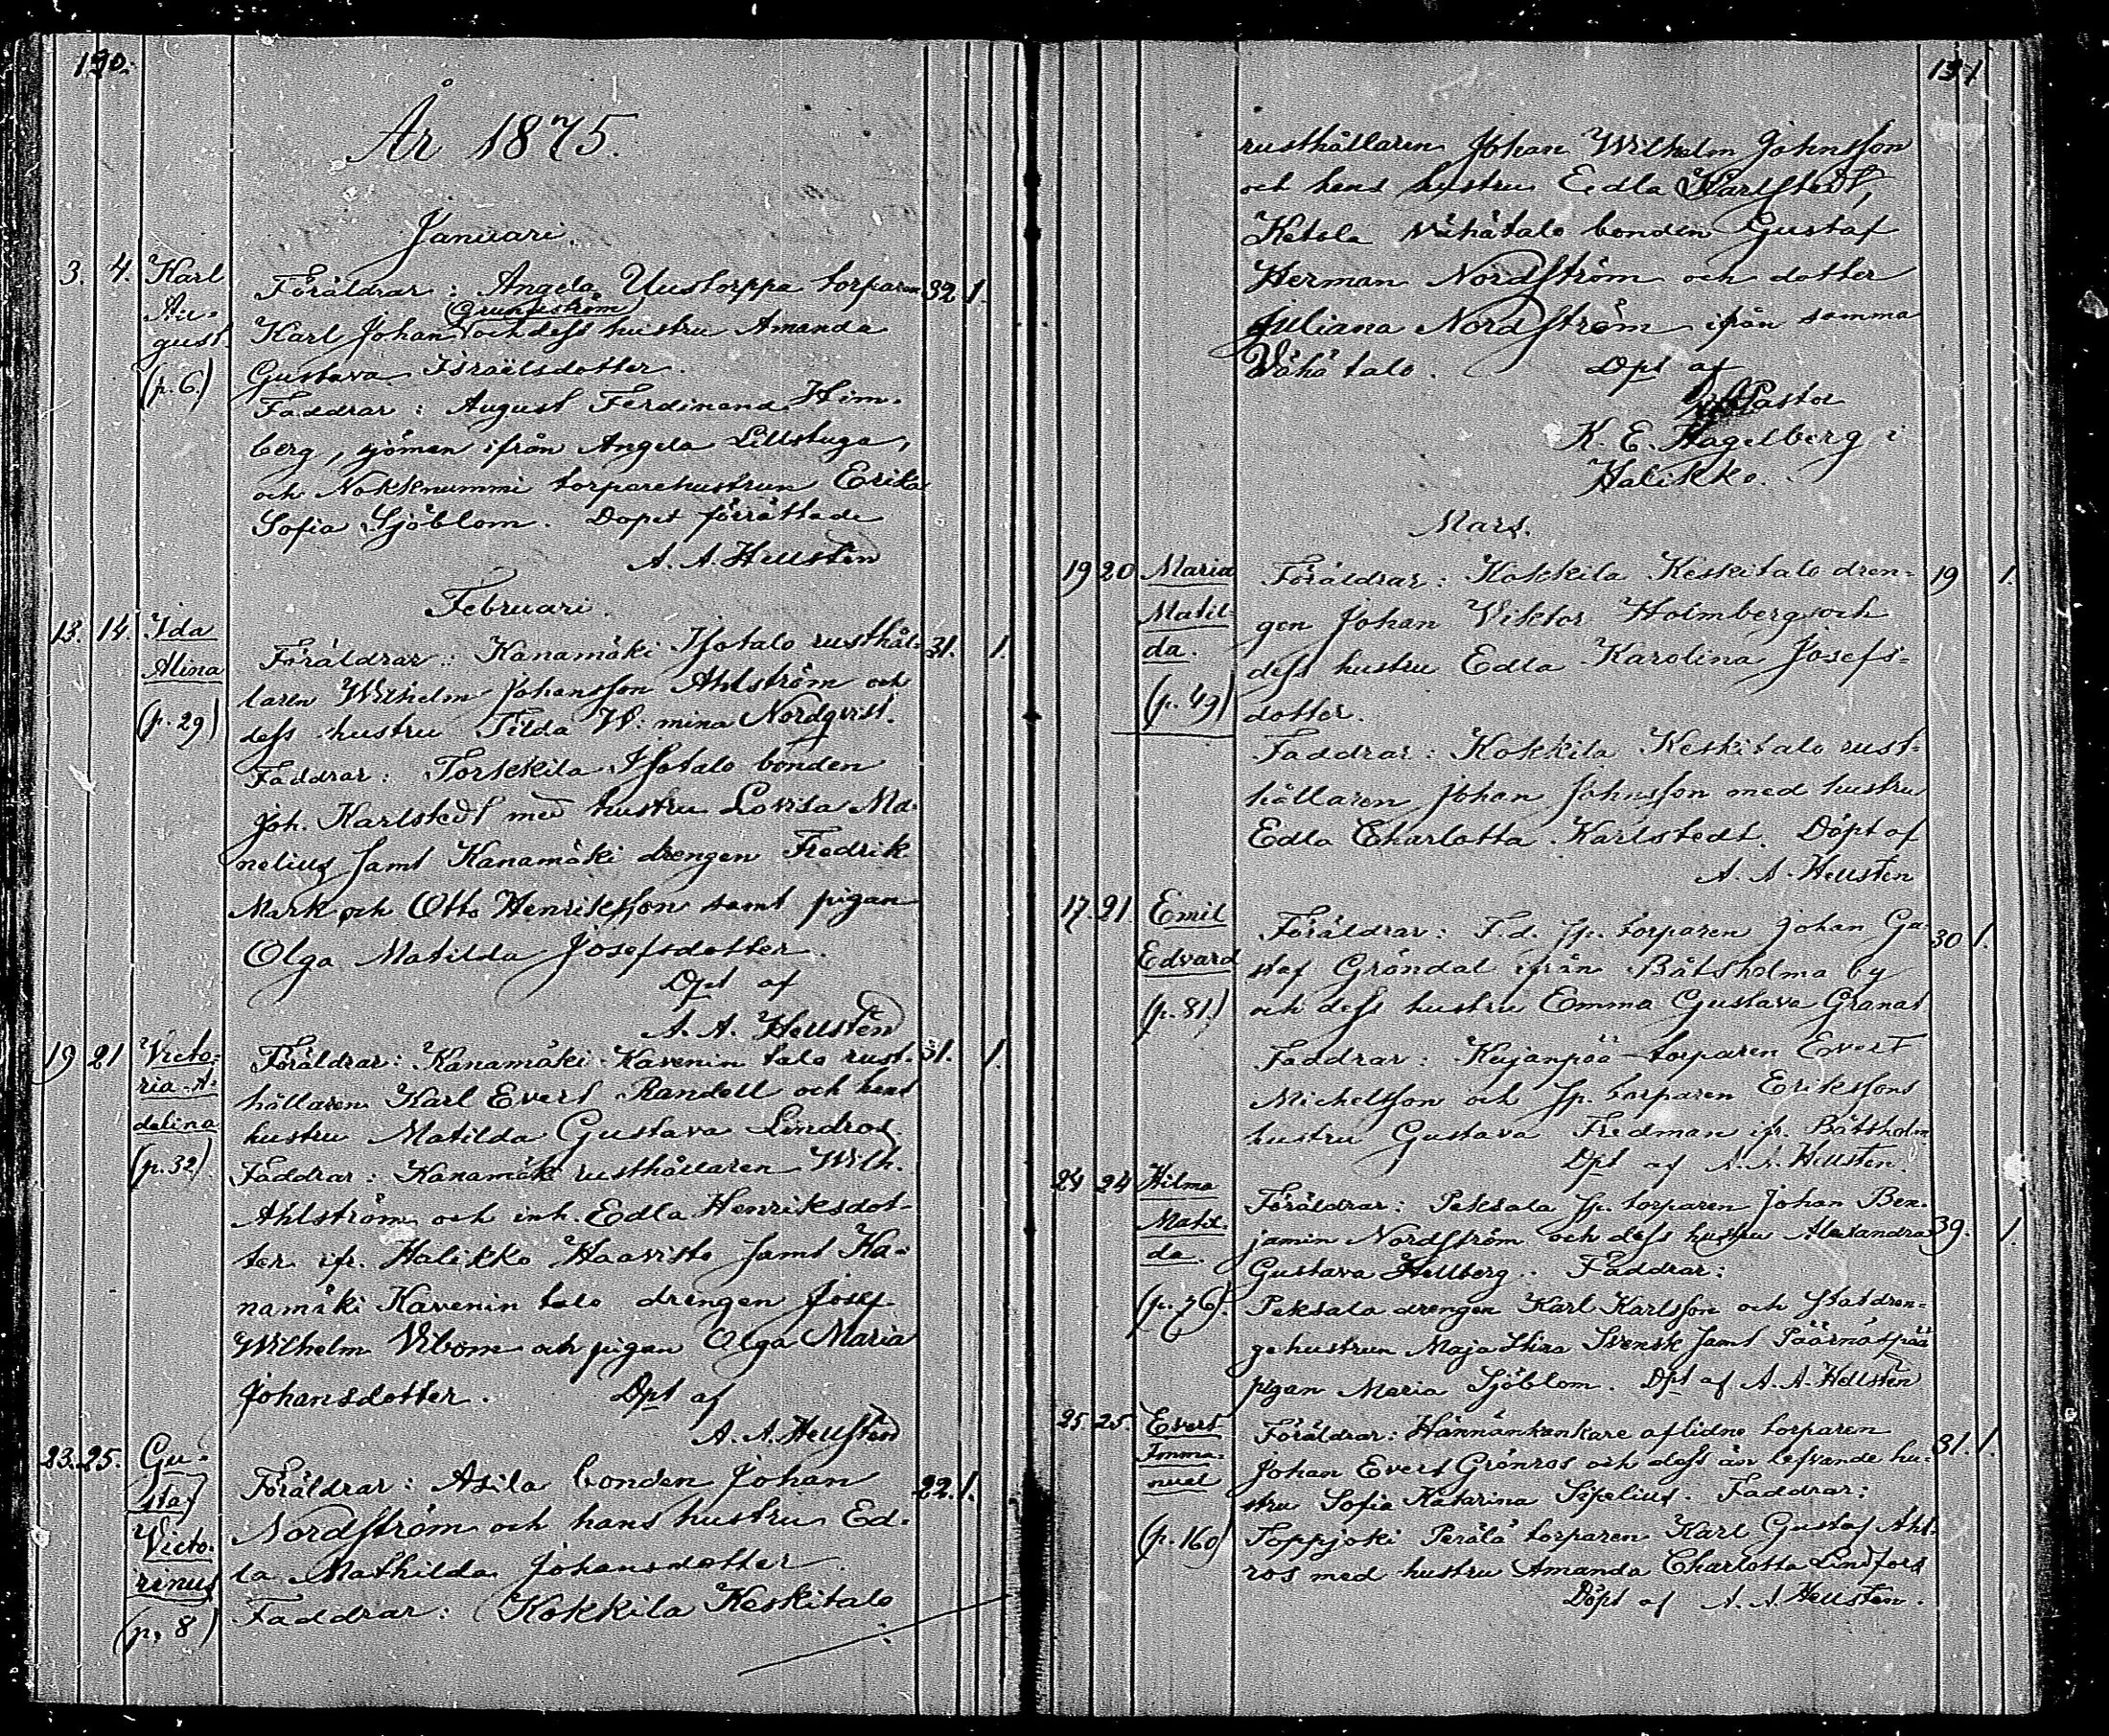 130.
År 1875.
Januari.
3. 4. Karl August. (p. 6.)
Föräldrar: Angela Uustorppa torparen 32. 1.
Karl Johan Grundström och dess hustru Amanda
Gustava Israëlsdotter.
Faddrar: August Ferdinand Him-
berg, sjöman ifrån Angela Lillstuga,
och Nokknummi torparehustrun Erika
Sofia Sjöblom. Dopet förrättade
A. A. Hellstén
Februari.
13. 14. Ida Alina (p. 29)
Föräldrar: Kanamäki Isotalo rusthål- 31. 1.
laren Wilhelm Johansson Ahlström och
dess hustru Tilda W:mina Nordqvist.
Faddrar: Torkkila Isotalo bonden
Joh. Karlstedt med hustru Lovisa Ma-
nelius samt Kanamäki drengen Fredrik
Mark och Otto Henriksson samt pigan
Olga Matilda Josefsdotter.
Dpt af
A. A. Hellstén
19 21 Victoria Adelina (p. 32)
Föräldrar: Kanamäki Kavenin talo rust- 31. 1.
hållaren Karl Evert Randell och hans
hustru Matilda Gustava Lindros.
Faddrar: Kanamäki rusthållaren Wilh.
Ahlström och inh. Edla Henriksdot-
ter ifr. Halikko Haavisto samt Ka-
namäki Kavenin talo drengen Josef
Wilhelm Vibom och pigan Olga Maria
Johansdotter. Dpt af
A. A. Hellstén
23. 25. Gustaf Victorinus (p. 8)
Föräldrar: Asila bonden Johan 22. 1.
Nordström och hans hustru Ed-
la Mathilda Johansdotter
Faddrar: Kokkila Keskitalo
131
rusthållaren Johan Wilhelm Johnsson
och hans hustru Edla Karlstedt,
Ketola Vähätalo bonden Gustaf
Herman Nordström och dotter
Juliana Nordström ifrån samma
Vähätalo. Dpt af
Pastor
K. E. Hagelberg i
Halikko.
Mars.
19 20 Maria Matilda. (p. 49)
Föräldrar: Kokkila Keskitalo dren- 19 1.
gen Johan Viktor Holmberg och
dess hustru Edla Karolina Josefs-
dotter.
Faddrar: Kokkila Keskitalo rust-
hållaren Johan Johnsson med hustru
Edla Charlotta Karlstedt. Döpt af
A. A. Hellstén
17. 21. Emil Edvard (p. 81.)
Föräldrar: F.d. sp. torparen Johan Gu- 30 1.
staf Gröndal ifrån Båtsholma by
och dess hustru Emma Gustava Granat
Faddrar: Kujanpää torparen Evert
Michelsson och sp. torparen Erikssons
hustru Gustava Fredman ifr. Båtsholm
Dpt af A. A. Hellstén.
24 24 Hilma Matilda. (p. 76).
Föräldrar: Peksala sp. torparen Johan Ben-
jamin Nordström och dess hustru Alexandra 39. 1.
Gustava Hellberg. Faddrar:
Peksala drengen Karl Karlsson och statdren-
gehustrun Maja Stina Svensk samt Päärnäspää
pigan Maria Sjöblom. Dpt af A. A. Hellstén
25. 25. Evert Immanuel (p. 160)
Föräldrar: Hännänkankare aflidne torparen 31. 1.
Johan Evert Grönros och dess än lefvande hu-
stru Sofia Katarina Sipelius. Faddrar:
Toppjoki Perälä torparen Karl Gustaf Ahl-
ros med hustru Amanda Charlotta Lindfors
Döpt af A. A. Hellstén.